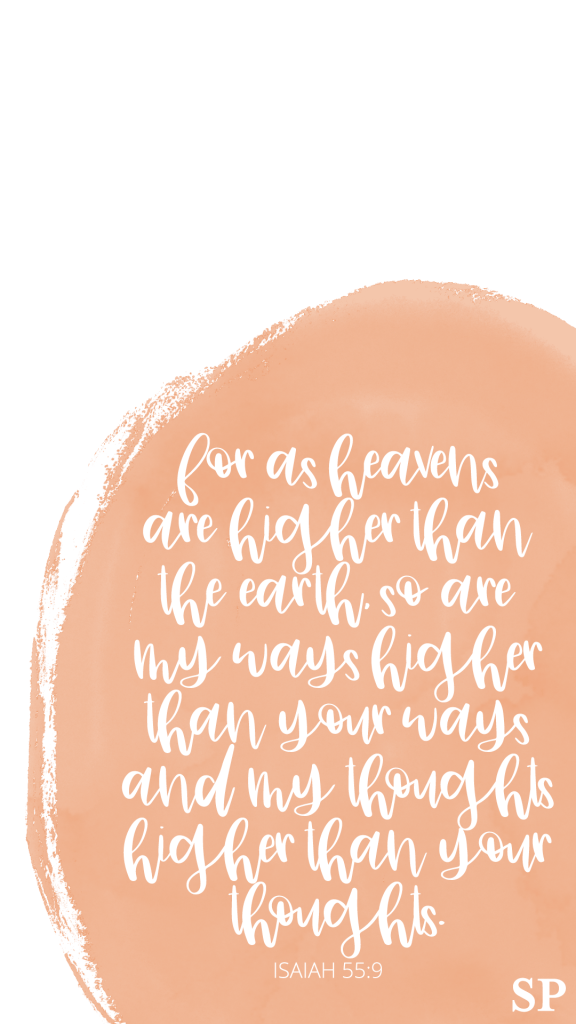 for as heavens
are higher than
the earth, so are
my ways higher
than your ways
and my thoughts
higher than your
thoughts.
ISAIAH 55:9
SP